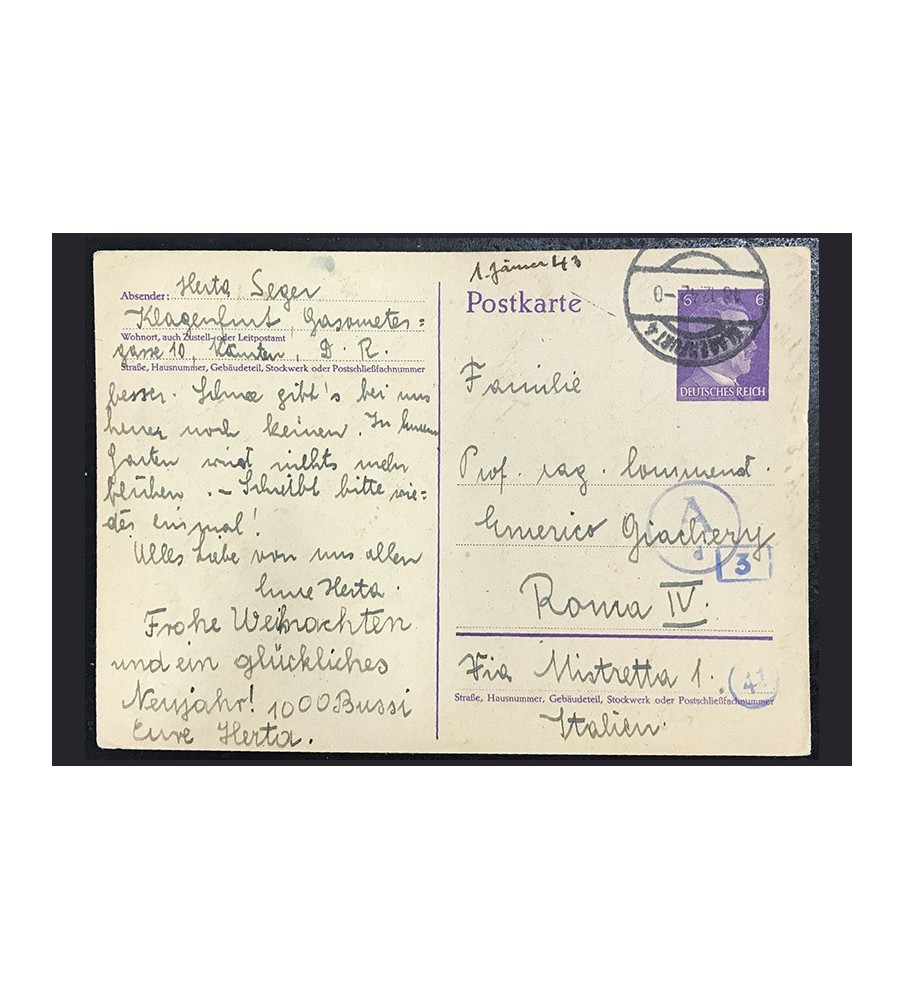 Absender: Herta Seger
Klagenfurt, Gasometer=
Wohnort, auch Zustell- oder Leitpostamt
gasse 10, Kärnten, D. R.
Straße, Hausnummer, Gebäudeteil, Stockwerk oder Postschließfachnummer
besser. Schnee gibt's bei uns
heuer noch keinen. In
Garten wird nichts mehr
blühen. – Schreibt bitte wie=
der einmal!
Alles Liebe von uns allen
Eure Herta.
Frohe Weihnachten
und ein glückliches
Neujahr! 1000 Bussi
Eure Herta.
1. Jänner 43
Postkarte
6 6
DEUTSCHES REICH
KLAGENFURT 4
Familie
Prof. rag. Commend.
Emerico Giachery
A
d
3
Roma IV.
Via Mistretta 1.
41
Straße, Hausnummer, Gebäudeteil, Stockwerk oder Postschließfachnummer
Italien.